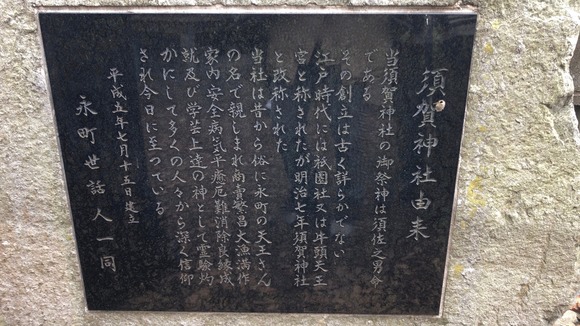 須賀神社由来
当須賀神社の御祭神は須佐之男命
である
その創立は古く詳らかでない
江戸時代には祇園社又は牛頭天王
宮と称されたが明治七年須賀神社
と改称された
当社は昔から俗に永町の天王さん
の名で親しまれ商売繁昌大漁満作
家内安全病気平癒厄難消除良縁成
就及び学芸上達の神として霊験灼
かにして多くの人々から深く信仰
され今日に至っている
平成五年七月十五日建立
永町世話人一同